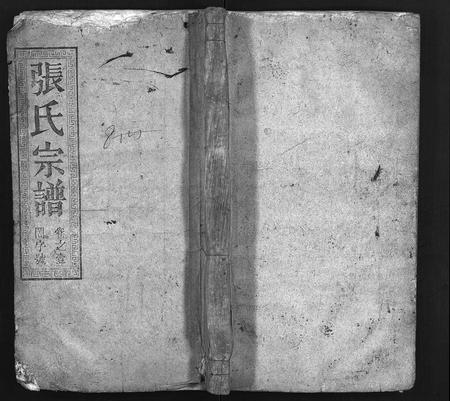 張氏宗譜
卷之壹
字號